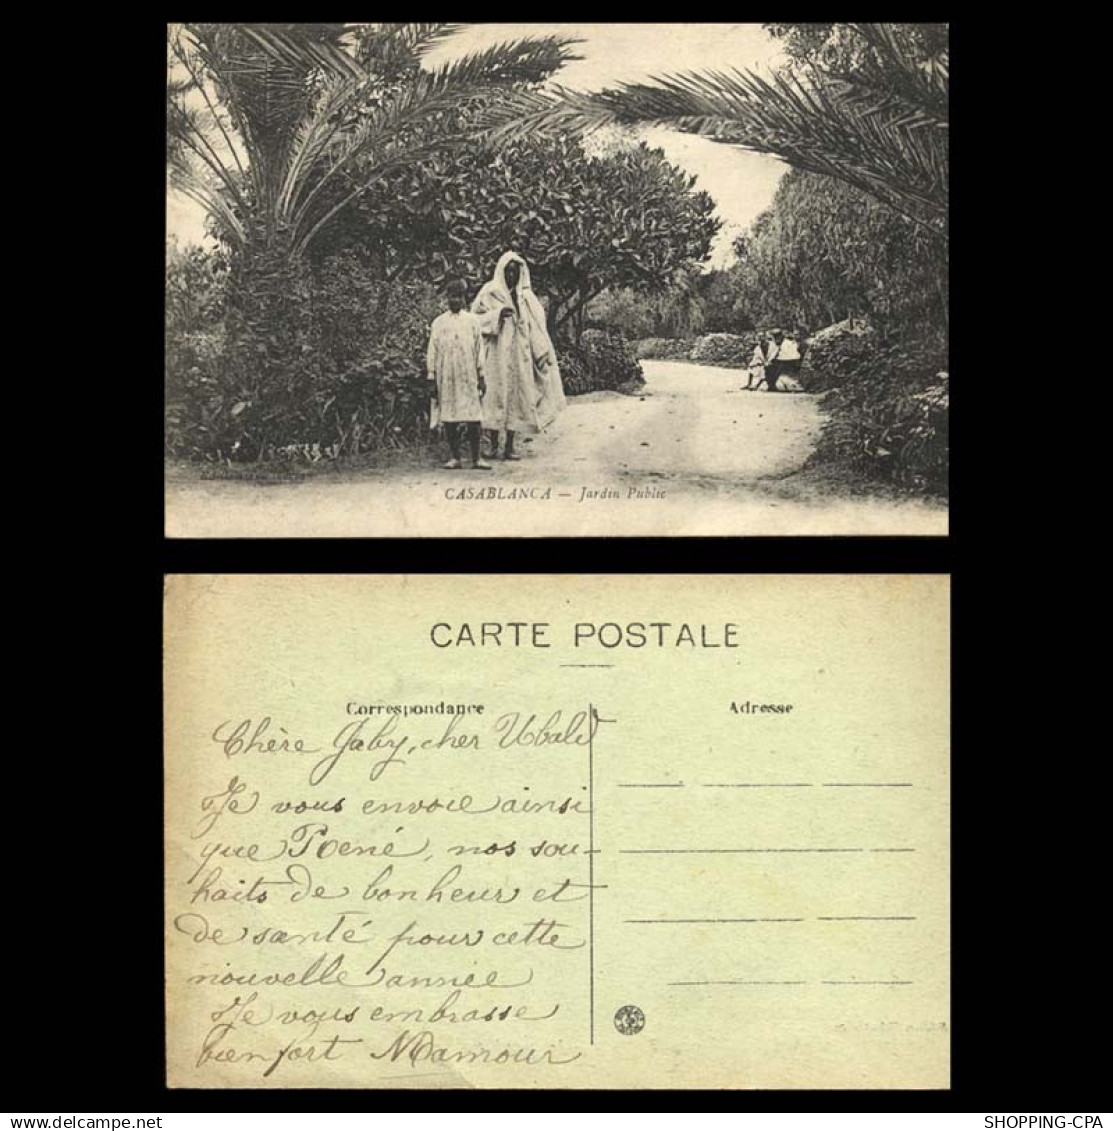 CASABLANCA — Jardin Public
CARTE POSTALE
Correspondance
Adresse
Chère Gaby, cher Ubald
Je vous envoie ainsi
que René, nos sou-
haits de bonheur et
de santé pour cette
nouvelle année
Je vous embrasse
bien fort Mamour
SHOPPING-CPA